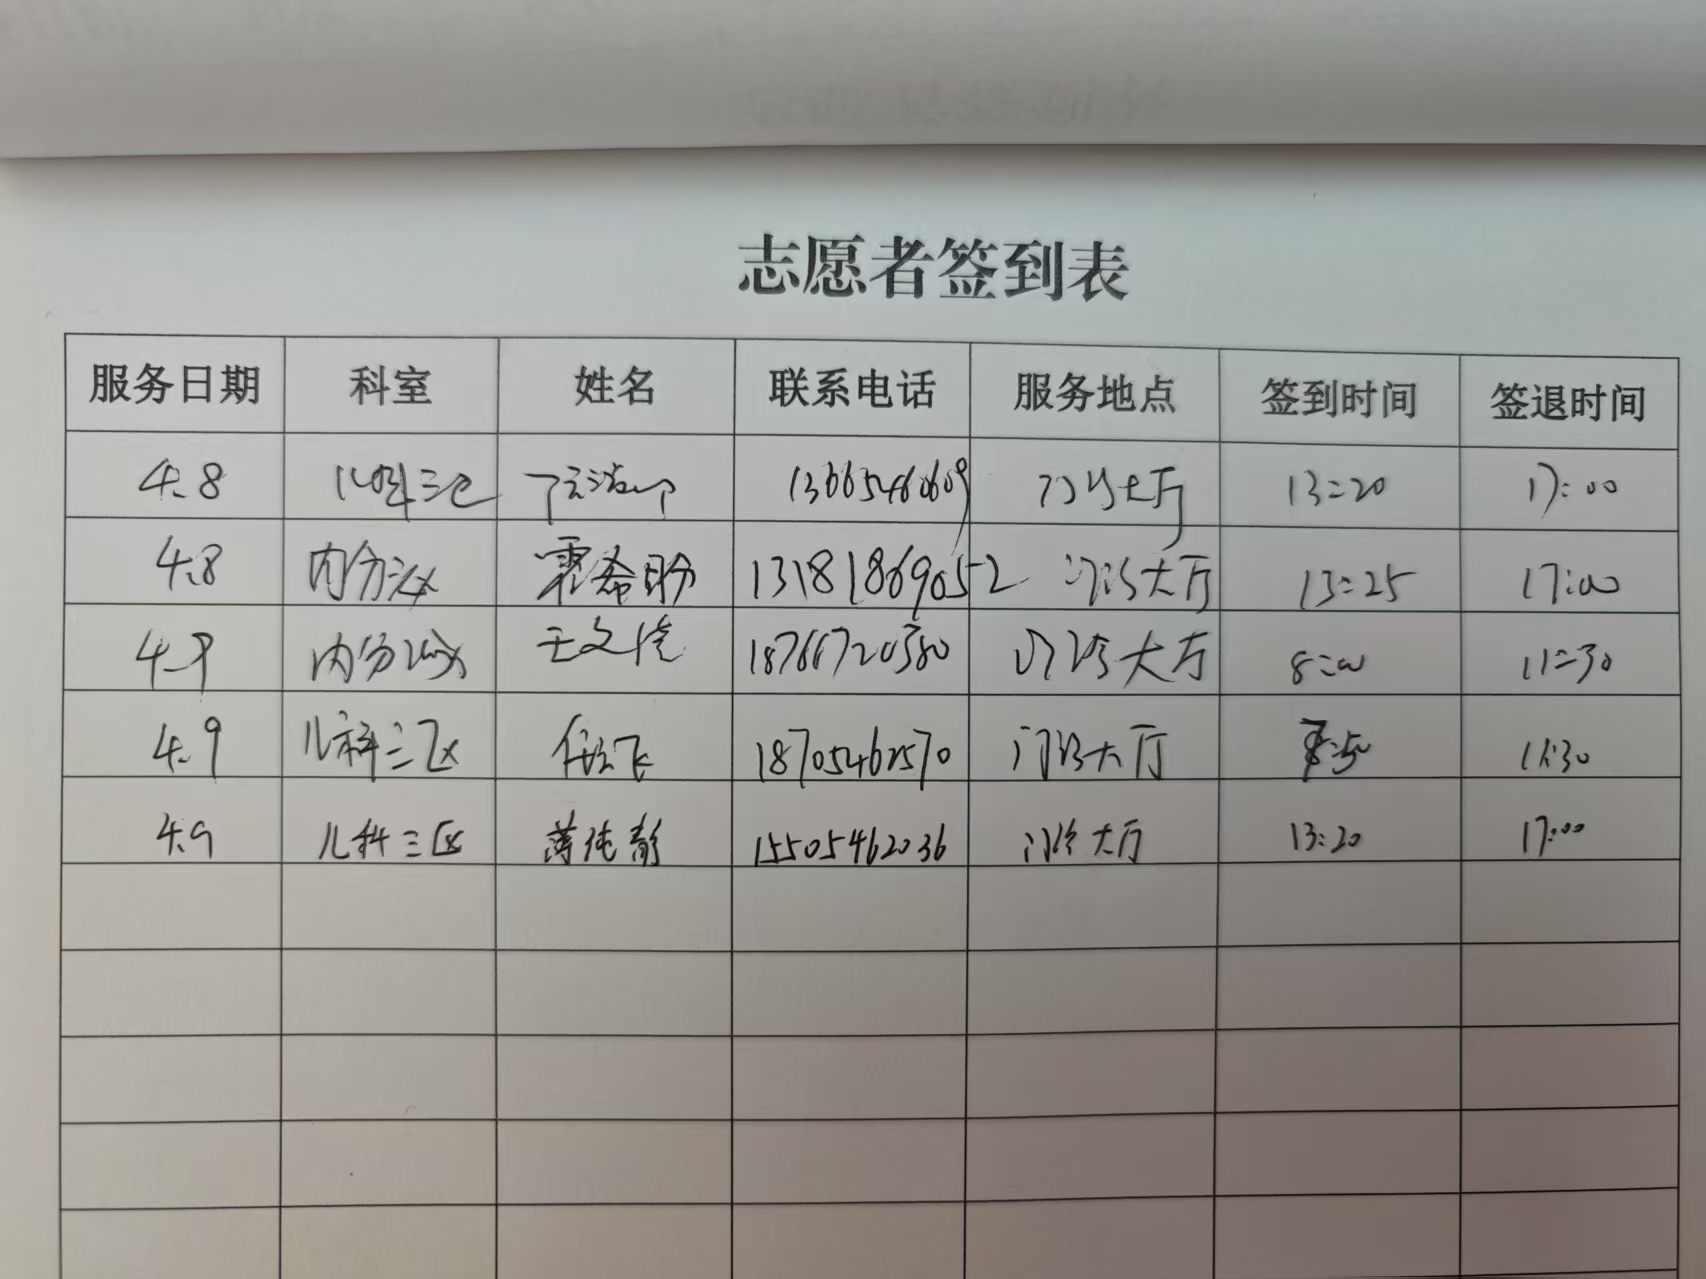 志愿者签到表
服务日期 科室 姓名 联系电话 服务地点 签到时间 签退时间
4.8 儿科三区 13665460609 门诊大厅 13:20 17:00
4.8 内分泌 霍希盼 13181869052 门诊大厅 13:25 17:00
4.9 内分泌 王文倩 18766720380 门诊大厅 8:00 11:30
4.9 儿科三区 任 飞 18705462570 门诊大厅 11:30
4.9 儿科三区 薄纯静 15505462036 门诊大厅 13:20 17:00